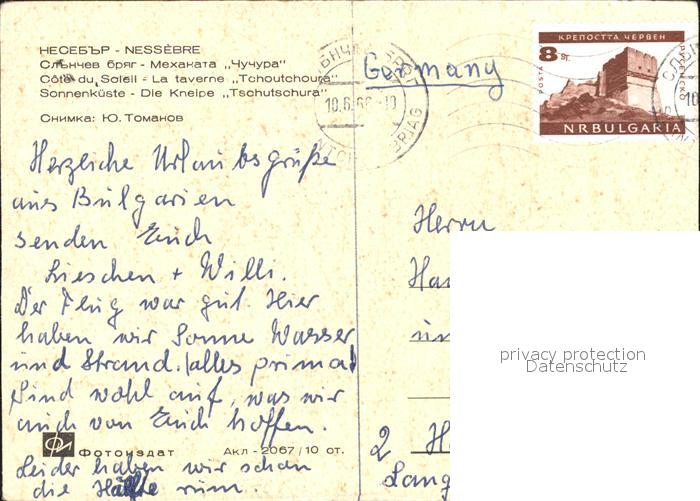 НЕСЕБЪР - NESSÈBRE
Слънчев бряг - Механата „Чучура"
Côte du Soleil - La taverne „Tchoutchoura"
Sonnenküste - Die Kneipe „Tschutschura"
Снимка: Ю. Томанов
Herzliche Urlaubsgrüße
aus Bulgarien
senden Euch
Lieschen + Willi.
Der Flug war gut. Hier
haben wir Sonne Wasser
und Strand. (alles prima)
Sind wohl auf, was wir
auch von Euch hoffen.
Фотоиздат Акл - 2067/10 от.
Leider haben wir schon
die Hälfte rum.
Germany
10.6.68
BRJAG
КРЕПОСТТА ЧЕРВЕН
8 ST.
POSTA
РУСЕНСКО
NRBULGARIA
Herrn
Ha
un
2 H
Lang
privacy protection
Datenschutz